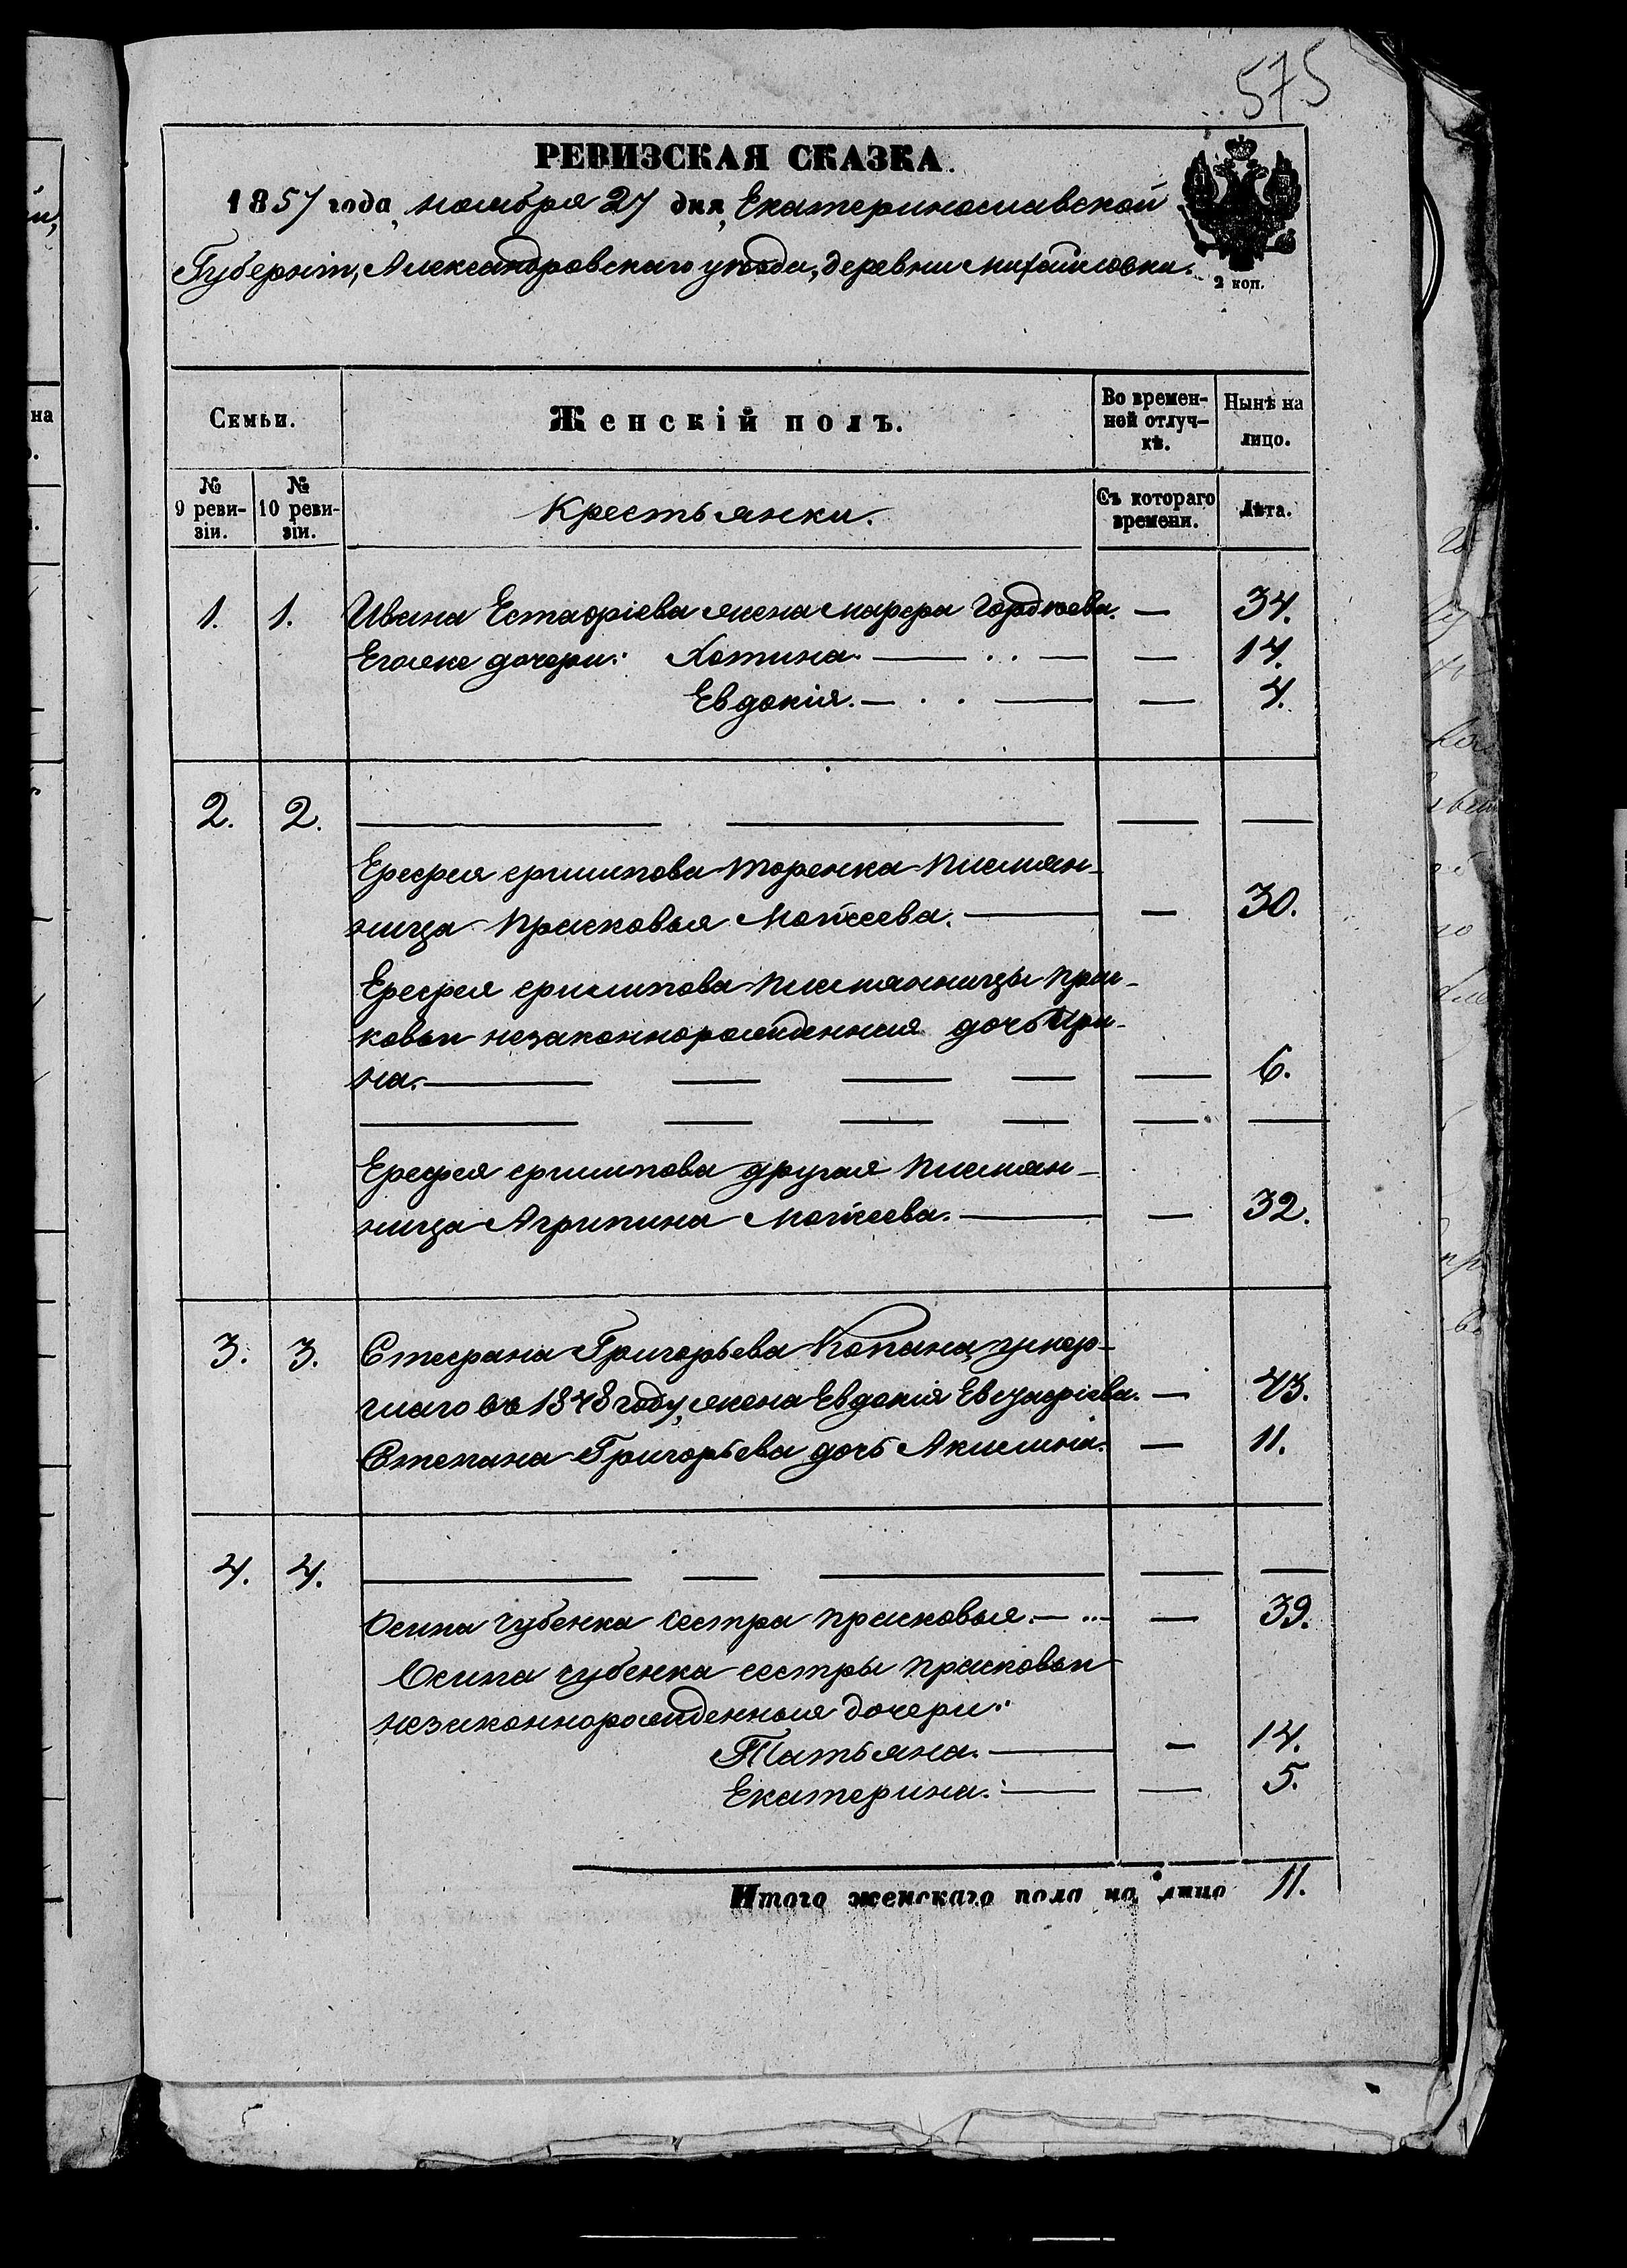 575
РЕВИЗСКАЯ СКАЗКА.
1857 года, ноября 27 дня, Екатеринославской
Губерніи, Александровскаго уѣзда, деревни Михайловки.
2 коп.
Семьи.
Женскій полъ.
Во времен-
ной отлуч-
кѣ.
Нынѣ на
лицо.
№
9 реви-
зіи.
№
10 реви-
зіи.
Крестьянки.
Съ котораго
времени.
Лѣта.
1. 1. Ивана Естафіева жена Марфа Гордѣева. — 34.
Егоже дочери: Хотина. — 14.
Евдокія. — 4.
2. 2. — — — —
Ерефея Филипова Торенка племян-
ница Прасковья Мойсеева. — — 30.
Ерефея Филипова племянницы Прас-
ковьи незаконнорожденная дочь Ири-
на. — — — — — 6.
Ерефея Филипова другая племян-
ница Агрипина Мойсеева. — — 32.
3. 3. Стефана Григорьева Копана, умер-
шаго въ 1848 году, жена Евдокія Евстафіева. — 43.
Степана Григорьева дочь Акилина. — 11.
4. 4. — — — — —
Осипа Чубенка сестра Прасковья. — — 39.
Осипа Чубенка сестры Прасковьи
незаконнорожденныя дочери:
Татьяна. — — 14.
Екатерина. — — 5.
Итого женскаго пола на лицо 11.